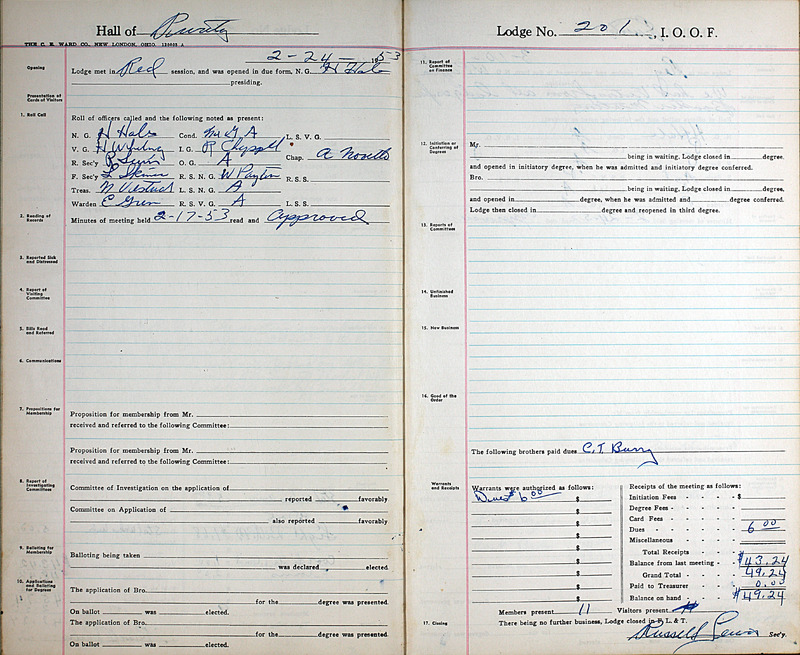 Hall of Purity
THE C. E. WARD CO. NEW LONDON, OHIO.
2-24- 1953
Opening
Lodge met in Red session, and was opened in due form, N. G. H Hale
presiding.
Presentation of Cards of Visitors
1. Roll Call
Roll of officers called and the following noted as present:
N. G. H Hale Cond. L. S. V. G.
V. G. I. G. R Chappell Chap. A
R. Sec'y R Lewis O. G. A
F. Sec'y L R. S. N. G. W Payton R. S. S.
Treas. L. S. N. G. A
Warden C R. S. V. G. A L. S. S.
2. Reading of Records
Minutes of meeting held 2-17-53 read and Approved
3. Reported Sick and Distressed
4. Report of Visiting Committee
5. Bills Read and Referred
6. Communications
7. Propositions for Membership
Proposition for membership from Mr.
received and referred to the following Committee:
Proposition for membership from Mr.
received and referred to the following Committee:
8. Report of Investigating Committees
Committee of Investigation on the application of
reported favorably
Committee on Application of
also reported favorably
9. Balloting for Membership
Balloting being taken
was declared elected.
10. Applications and Balloting for Degrees
The application of Bro.
for the degree was presented.
On ballot was elected.
The application of Bro.
for the degree was presented.
On ballot was elected.
Lodge No. 201, I. O. O. F.
11. Report of Committee on Finance
12. Initiation or Conferring of Degrees
Mr.
being in waiting, Lodge closed in degree,
and opened in initiatory degree, when he was admitted and initiatory degree conferred.
Bro.
being in waiting, Lodge closed in degree,
and opened in degree, when he was admitted and degree conferred.
Lodge then closed in degree and reopened in third degree.
13. Reports of Committees
14. Unfinished Business
15. New Business
16. Good of the Order
The following brothers paid dues C. T. Barry
Warrants and Receipts
Warrants were authorized as follows:
Dues $6 00
$
$
$
$
$
$
$
$
Receipts of the meeting as follows:
Initiation Fees - $
Degree Fees
Card Fees
Dues 6 00
Miscellaneous
Total Receipts
Balance from last meeting $43.24
Grand Total 49.24
Paid to Treasurer 0.00
Balance on hand $49.24
Members present 11 Visitors present
17. Closing
There being no further business, Lodge closed in F. L. & T.
Russell Lewis Sec'y.